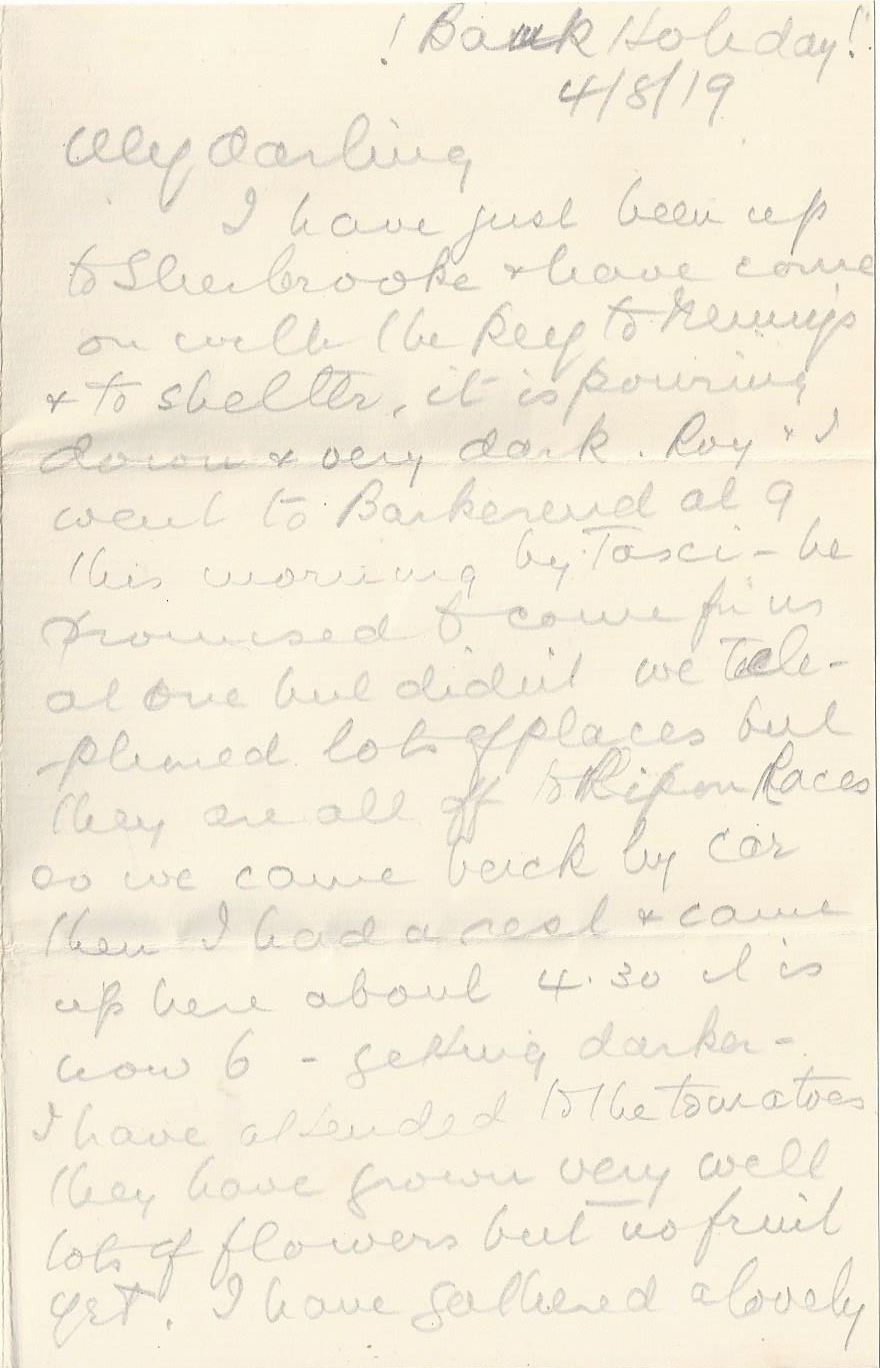 ! Bank Holiday!
4/8/19
My darling
I have just been up
to Sherbrooke & have come
on with the key to
& to shelter, it is pouring
down & very dark. Roy & I
went to Barkerend at 9
this morning by Taxi - he
promised to come for us
at one but didn't we tele-
-phoned lots of places but
they are all off to Ripon Races
so we came back by car
then I had a rest & came
up here about 4.30 it is
now 6 - getting darker -
I have attended to the tomatoes
they have grown very well
lots of flowers but no fruit
yet. I have gathered a lovely